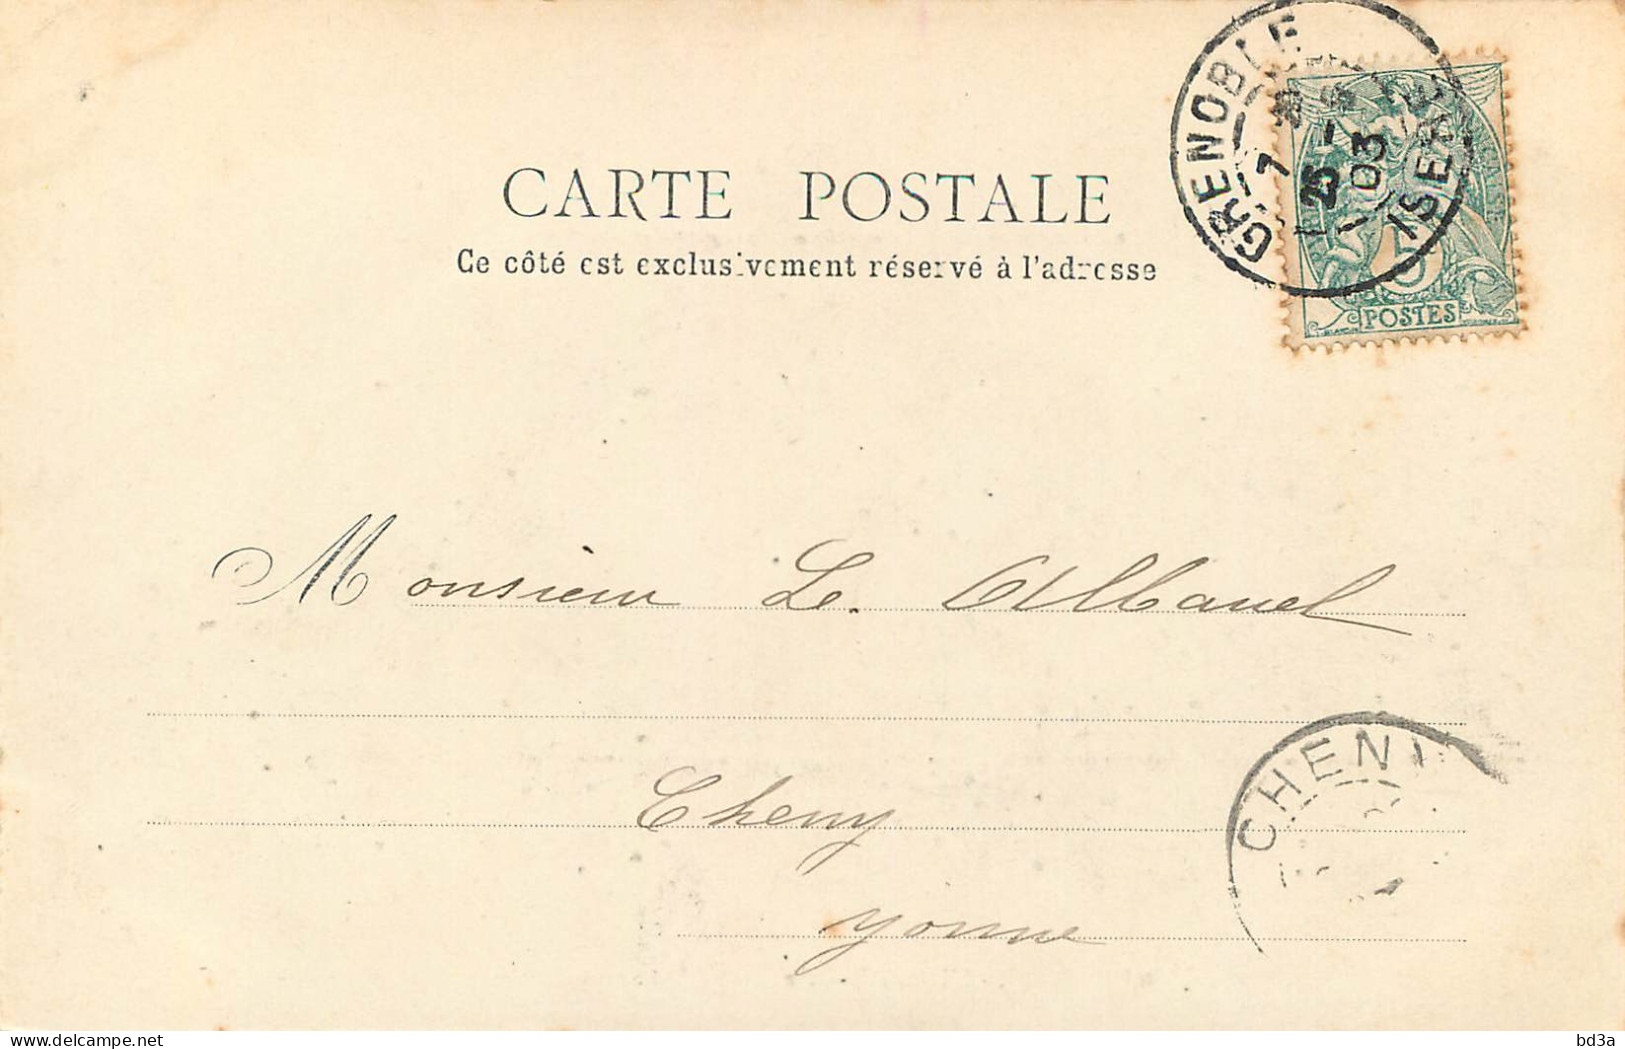 CARTE POSTALE
Ce côté est exclusivement réservé à l'adresse
GRENOBLE
7
25 -
03
ISERE
5
POSTES
Monsieur Le. Albanel
Cheny
yonne
CHENY
delcampe.net
bd3a